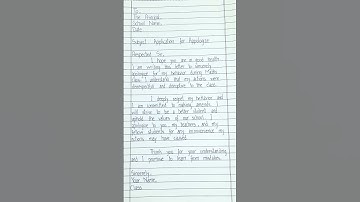 To,
The Principal,
School Name,
Date
Subject: Application for Apologize
Respected Sir,
I hope you are in good health
I am writing this letter to sincerely
apologize for my behavior during Maths
class. I understand that my actions were
disrespectful and disruptive to the class.
I deeply regret my behavior and
I am committed to making amends. I
will strive to be a better student and
uphold the values of our school. I
apologize to you, my teachers, and my
fellow students for any inconvenience my
actions may have caused.
Thank you for your understanding
and I promise to learn from mistakes.
Sincerely,
Your Name,
Class